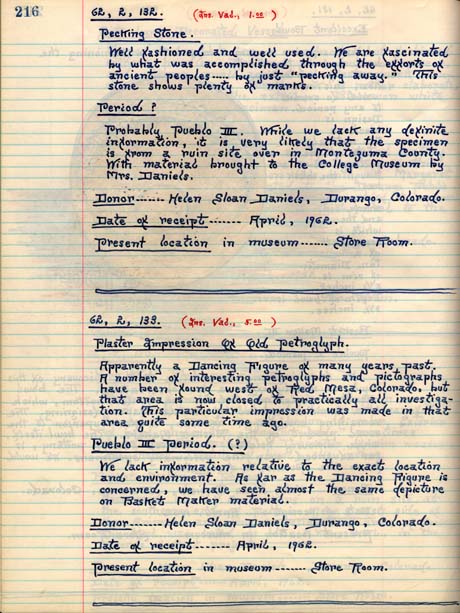 216
62, 2, 132. (Ins. Val., 1.00 )
Pecking Stone.
Well fashioned and well used. We are fascinated
by what was accomplished through the efforts of
ancient peoples.... by just "pecking away." This
stone shows plenty of marks.
Period ?
Probably Pueblo III. While we lack any definite
information, it is very likely that the specimen
is from a ruin site over in Montezuma County.
With material brought to the College Museum by
Mrs. Daniels.
Donor------- Helen Sloan Daniels, Durango, Colorado.
Date of receipt------- April, 1962.
Present location in museum------- Store Room.
62, 2, 133. (Ins. Val., 5.00 )
Plaster Impression Of Old Petroglyph.
Apparently a Dancing Figure of many years past.
A number of interesting petroglyphs and pictographs
have been found west of Red Mesa, Colorado, but
that area is now closed to practically all investiga-
tion. This particular impression was made in that
area quite some time ago.
Pueblo III Period. (?)
We lack information relative to the exact location
and environment. As far as the Dancing Figure is
concerned, we have seen almost the same depicture
on Basket Maker material.
Donor------- Helen Sloan Daniels, Durango, Colorado.
Date of receipt-------- April, 1962.
Present location in museum------- Store Room.